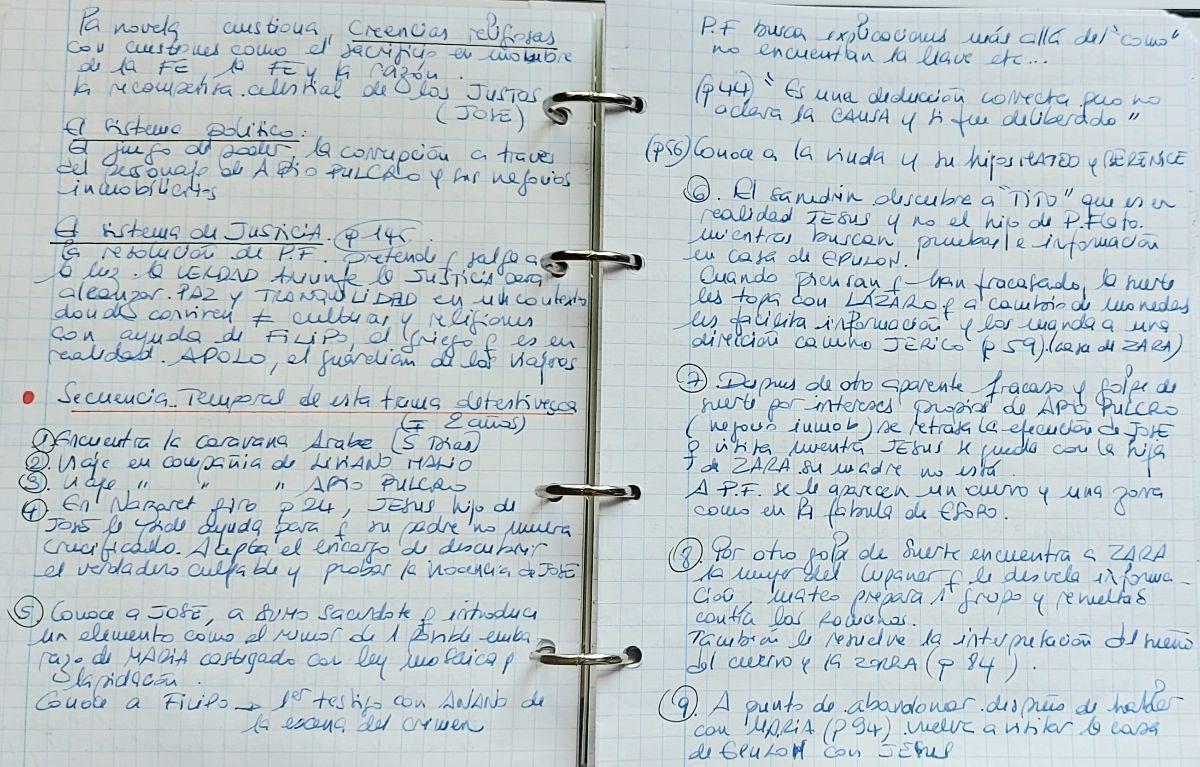 La novela cuestiona creencias religiosas
con cuestiones como el sacrificio en nombre
de la FE, la FE y la razón.
la recompensa celestial de los JUSTOS
(JOSE)
El sistema político:
El juego de poder, la corrupción a traves
del personaje de APIO PULCRO y sus negocios
inmobiliarios
El sistema de JUSTICIA. p 145.
la resolución de P.F. pretende q salga a
la luz la VERDAD triunfe la JUSTICIA para
alcanzar PAZ y TRANQUILIDAD en un contexto
donde conviven ≠ culturas y religiones
con ayuda de FILIPO, el griego q es en
realidad APOLO, el guardián de los viajeros
Secuencia Temporal de esta trama detectivesca
(∓ 2 años)
① Encuentra la caravana Arabe (5 Dias)
②. Viaje en compañia de LIVIANO MALIO
③. Viaje " " " APIO PULCRO
④. En Nazaret giro p 24, JESUS hijo de
JOSE le pide ayuda para q su padre no muera
crucificado. Acepta el encargo de descubrir
el verdadero culpable y probar la inocencia de JOSE
⑤ Conoce a JOSE, a SUMO Sacerdote q introduce
un elemento como el rumor de 1 posible emba-
razo de MARIA castigado con ley mosaica p
lapidación.
Conoce a FILIPO → 1er testigo con ANANO de
la escena del crimen
P.F busca explicaciones más allá del "como"
no encuentran la llave etc...
(p 44) "Es una deducción correcta pero no
aclara la CAUSA y si fue deliberado"
(p56) Conoce a la viuda y su hijos MATEO y BERENICE
⑥. El sanedrín descubre a "TITO" que es en
realidad JESUS y no el hijo de P.Flato.
mientras buscan pruebas e información
en casa de EPULON.
Cuando piensan q han fracasado, la suerte
les topa con LAZARO q a cambio de monedas
les facilita información y los manda a una
dirección camino JERICO (p 59). (casa de ZARA)
⑦ Despues de otro aparente fracaso y golpe de
suerte por intereses propios de APIO PULCRO
(negocios inmob) se retrasa la ejecución de JOSE
visita JESUS se queda con la hija
de ZARA su madre no está.
A P.F. se le aparecen un cuervo y una zorra
como en la fabula de ESOPO.
⑧. Por otro golpe de suerte encuentra a ZARA
la mujer del lupanar q le desvela informa-
ción, mateo prepara 1 grupo y revueltas
contra los romanos.
Tambien le resuelve la interpretación del sueño
del cuervo y la ZORRA (p 84).
⑨. A punto de abandonar despues de hablar
con MARIA (p 94) vuelve a visitar la casa
de EPULON con JESUS